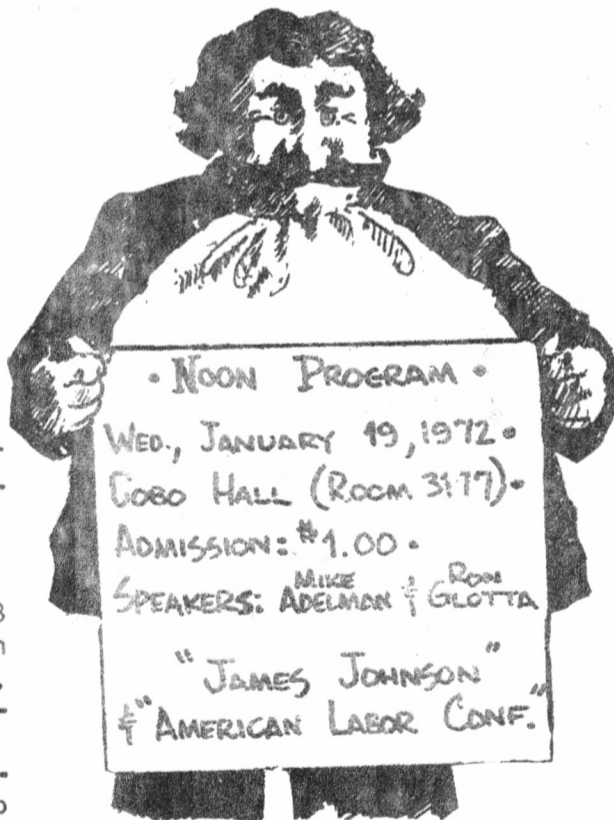 • NOON PROGRAM •
WED., JANUARY 19, 1972 •
COBO HALL (ROOM 3177) •
ADMISSION: $1.00 •
SPEAKERS: MIKE ADELMAN & RON GLOTTA
"JAMES JOHNSON"
& "AMERICAN LABOR CONF."